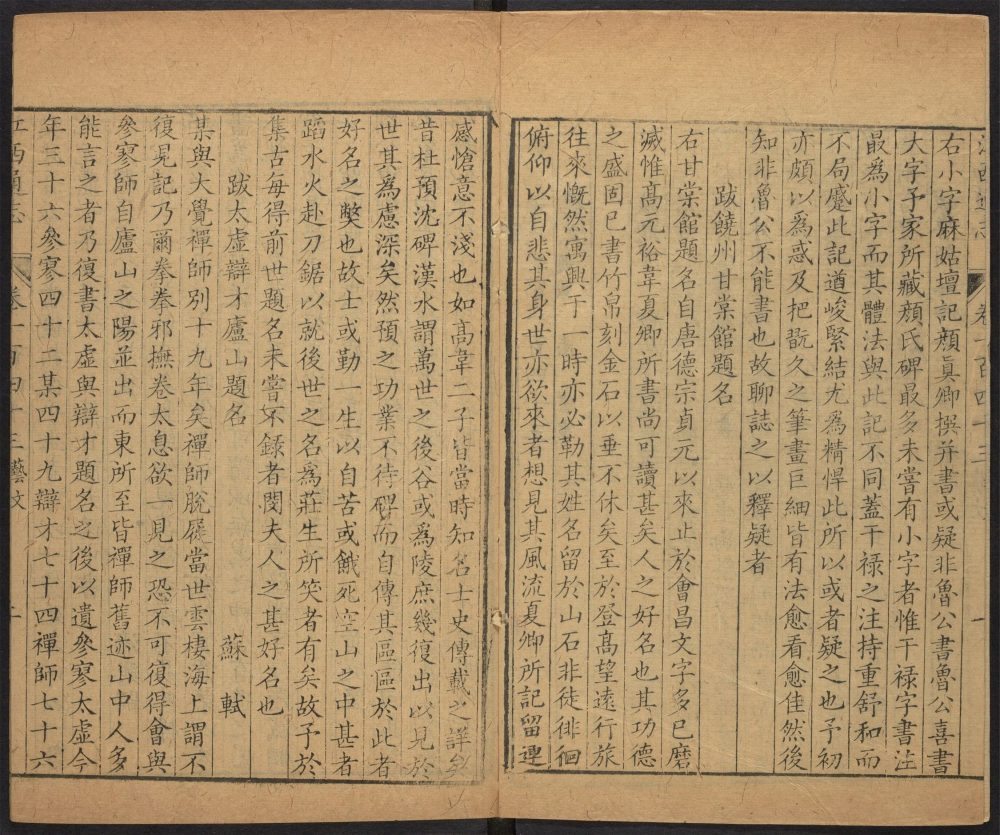 江西通志 卷一百四十三 一
右小字麻姑壇記顔眞卿撰并書或疑非魯公書魯公喜書
大字予家所藏顔氏碑最多未嘗有小字者惟干禄字書注
最為小字而其體法與此記不同蓋干禄之注持重舒和而
不局蹙此記遒峻緊結尤為精悍此所以或者疑之也予初
亦頗以為惑及把翫久之筆畫巨細皆有法愈看愈佳然後
知非魯公不能書也故聊誌之以釋疑者
跋饒州甘棠館題名
右甘棠館題名自唐德宗貞元以來止於會昌文字多已磨
滅惟髙元裕韋夏卿所書尚可讀甚矣人之好名也其功德
之盛固已書竹帛刻金石以垂不休矣至於登髙望遠行旅
往來慨然寓興于一時亦必勒其姓名留於山石非徒徘徊
俯仰以自悲其身世亦欲來者想見其風流夏卿所記留連
感愴意不淺也如髙韋二子皆當時知名士史傳載之詳矣
昔杜預沈碑漢水謂萬世之後谷或為陵庶幾復出以見於
世其為慮深矣然預之功業不待碑而自傳其區區於此者
好名之弊也故士或勤一生以自苦或餓死空山之中甚者
蹈水火赴刀鋸以就後世之名為莊生所笑者有矣故予於
集古毎得前世題名未嘗不録者閔夫人之甚好名也
跋太虛辯才廬山題名 蘇軾
某與大覺禪師别十九年矣禪師脫屣當世雲棲海上謂不
復見記乃爾拳拳邪撫卷太息欲一見之恐不可復得會與
參寥師自廬山之陽並出而東所至皆禪師舊迹山中人多
能言之者乃復書太虛與辯才題名之後以遺參寥太虛今
年三十六參寥四十二某四十九辯才七十四禪師七十六
江西通志 卷一百四十三 藝文 二